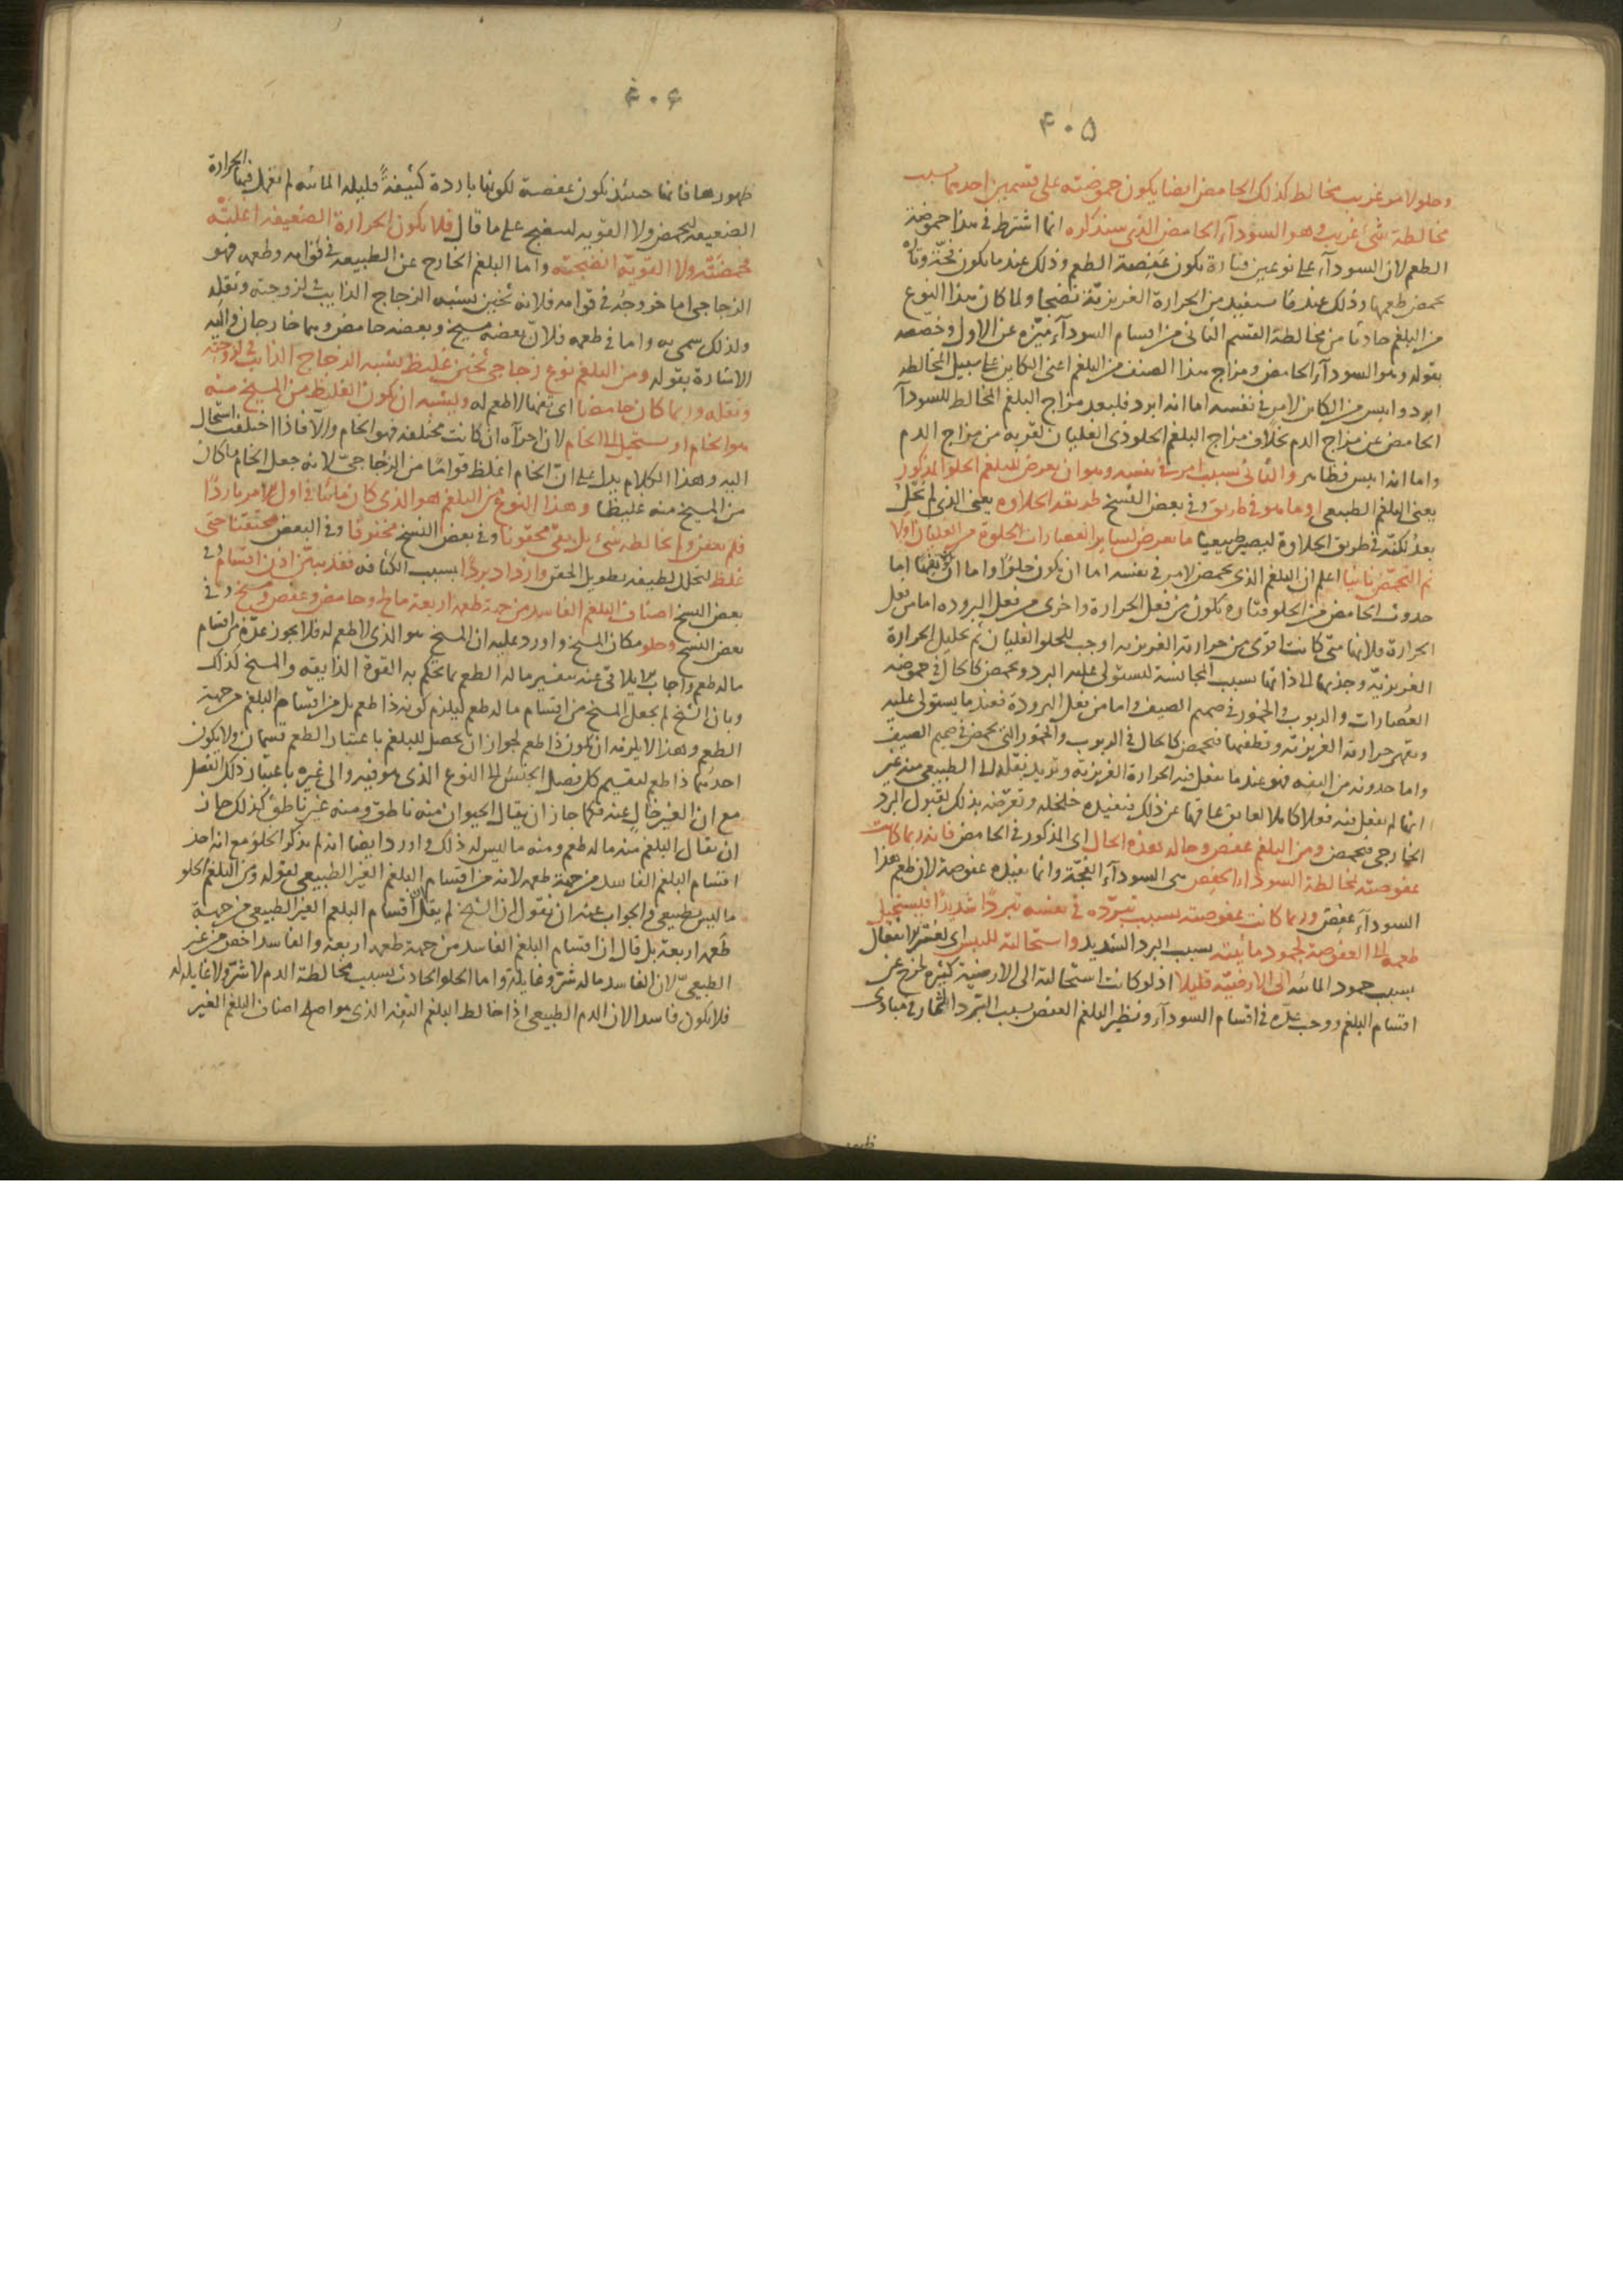 ۴۰۵
وحلو لامر غريب مخالط كذلك الحامض ايضا يكون حموضته على قسمين احدهما بسبب
مخالطة شئ غريب وهو السودآء الحامض الذى سنذكره انما اشترط فى هذا حموضة
الطعم لان السودآء على نوعين فتارة يكون عفصة الطعم وذلك عندما يكون فجّة وتارة
يحمض طعمها وذلك عندما يستفيد من الحرارة الغريزيّة نضجا ولما كان هذا النوع
من البلغم حادثا من مخالطة القسم الثانى من اقسام السودآء ميّزه عن الاول وخصصه
بقوله وهو السودآء الحامض ومزاج هذا الصنف من البلغم اعنى الكاين على سبيل المخالطه
ابرد وايبس من الكاين لامر فى نفسه اما انه ابرد فلبعد مزاج البلغم المخالط للسودآ
الحامض عن مزاج الدم بخلاف مزاج البلغم الحلو ذى الغليان لقربه من مزاج الدم
واما انه ايبس فظاهر والثانى بسبب امر فى نفسه وهو ان يعرض للبلغم الحلو المذكور
يعنى البلغم الطبيعى او ما هو فى طريق وفى بعض النسخ طريقه الحلاوه يعنى الذى لم يَحْلُ
بعدُ لكنّه فى طريق الحلاوة ليصير طبيعيا ما يعرض لساير العصارات الحلوة من الغليان اولا
ثم التحمّض ثانيا اعلم ان البلغم الذى يحمض لامر فى نفسه اما ان يكون حلوًا واما ان يكون تفها اما
حدوث الحامض من الحلو فتاره يكون من فعل الحرارة واخرى من فعل البروده اما من فعل
الحرارة فلانها متى كانت اقوى من حرارته الغريزيه اوجب للحلو الغليان ثم تحليل الحرارة
الغريزيّه وجذبها الى ذاتها بسبب المجانسة ليستولى عليه البرد ويحمض كالحال فى حموضه
العصارات والربوب والخمور فى صميم الصيف واما من فعل البرودة فعندما يستولى عليه
ويقهر حرارته الغريزيّه ويطفيها فيحمض كالحال فى الربوب والخمور التى تحمض فى صميم الصيف
واما حدوثه من التفه فهو عندما يفعل فيه الحرارة الغريزيه وتريد نقله الى الطبيعى منه غير
انها لم تفعل فيه فعلا كاملا لعايق عاقها عن ذلك فيفيده خلخله وتعرّضه بذلك لقبول البرد
الخارجى فيحمض ومن البلغم عفص وحاله هذه الحال اى المذكور فى الحامض فانه ربما كانت
عفوصته لمخالطة السودآء العفص هى السودآء الفجّة وانما يفيده عفوصة لان طعم هذا
السودآء عفص وربما كانت عفوصته بسبب تبرّده فى نفسه تبردًا شديدًا فيستحيل
طعمه الى العفوصة لجمود مائيته بسبب البرد الشديد واستحالته لليبس اى لغير الانفعال
بسبب جمود المائيه الى الارضيّه قليلا اذ لو كانت استحالته الى الارضية كثيره لخرج عن
اقسام البلغم ووجب عدّه فى اقسام السودآء ونظير البلغم العفص بسبب التبرد الثمار فى مبادى
ظهور
۴۰۶
ظهورها فانها حينئذ يكون عفصة لكونها باردة كثيفةً قليله المائيه لم تفعل فيها الحرارة
الضعيفه لتحمض ولا القويه لتنضج على ما قال فلا يكون الحرارة الضعيفه اغلته
فحمضته ولا القويّه انضجته واما البلغم الخارج عن الطبيعه فى قوامه وطعمه فهو
الزجاجى اما خروجه فى قوامه فلانه ثخين يشبه الزجاج الذايب فى لزوجته وثقله
ولذلك سمى به واما فى طعمه فلان بعضه مسيخ وبعضه حامض وهما خارجان واليه
الاشارة بقوله ومن البلغم نوع زجاجى ثخين غليظ يشبه الزجاج الذايب فى لزوجته
وثقله وربما كان حامضا اى تفها لا طعم له ويشبه ان يكون الغليظ من المسيخ منه
هو الخام او يستحيل الى الخام لان اجزآه ان كانت مختلفه فهو الخام والّا فاذا اختلفت استحال
اليه وهذا الكلام يدل على انّ الخام اغلظ قوامًا من الزجاجىّ لانه جعل الخام ما كان
من المسيخ منه غليظا وهذا النوع من البلغم هو الذى كان مائيًا فى اول الامر باردًا
فلم يعفن ولم يخالطه شئ بل بقى محقونا وفى بعض النسخ مخنوقا وفى البعض محتقنا حتى
غلظ لتحلل لطيفه بطول الحقن وازداد بردًا بسبب الكثافه فقد تبيّن اذن اقسام وفى
بعض النسخ اصناف البلغم الفاسد من جهة طعمه اربعة مالح وحامض وعفص ومسيخ وفى
بعض النسخ وحلو مكان المسيخ واورد عليه ان المسيخ هو الذى لا طعم له فلا يجوز عدّه من اقسام
ماله طعم واجاب الايلاقى عنه بتفسير ماله الطعم بما تحكم به القوة الذايقه والمسيخ لذلك
وبان الشيخ لم يجعل المسيخ من اقسام ماله طعم ليلزم كونه ذا طعم بل من اقسام البلغم من جهة
الطعم وهذا لا يلزمه ان يكون ذا طعم لجواز ان يحصل للبلغم باعتبار الطعم قسمان ولا يكون
احدهما ذا طعم كتقسيم كل فصل الجنس الى النوع الذى هو فيه والى غيره باعتبار ذلك الفصل
مع ان الغير خال عنه فكما جاز ان يقال الحيوان منه ناطق ومنه غير ناطق كذلك جاز
ان يقال البلغم منه ماله طعم ومنه ما ليس له ذلك واورد ايضا انه لم يذكر الحلو مع انه احد
اقسام البلغم الفاسد من جهة طعمه لانه من اقسام البلغم الغير الطبيعى لقوله ومن البلغم الحلو
ما ليس بطبيعى والجواب عنه ان نقول ان الشيخ لم يقل ان اقسام البلغم الغير الطبيعى من جهة
طعمه اربعة بل قال ان اقسام البلغم الفاسد من جهة طعمه اربعه والفاسد اخص من غير
الطبيعىّ لان الفاسد ماله شرّ وغايلة واما الحلو الحادث بسبب مخالطة الدم لا شرّ ولا غايله له
فلا يكون فاسدا لان الدم الطبيعى اذا خالط البلغم التفه الذى هو اصلح اصناف البلغم الغير